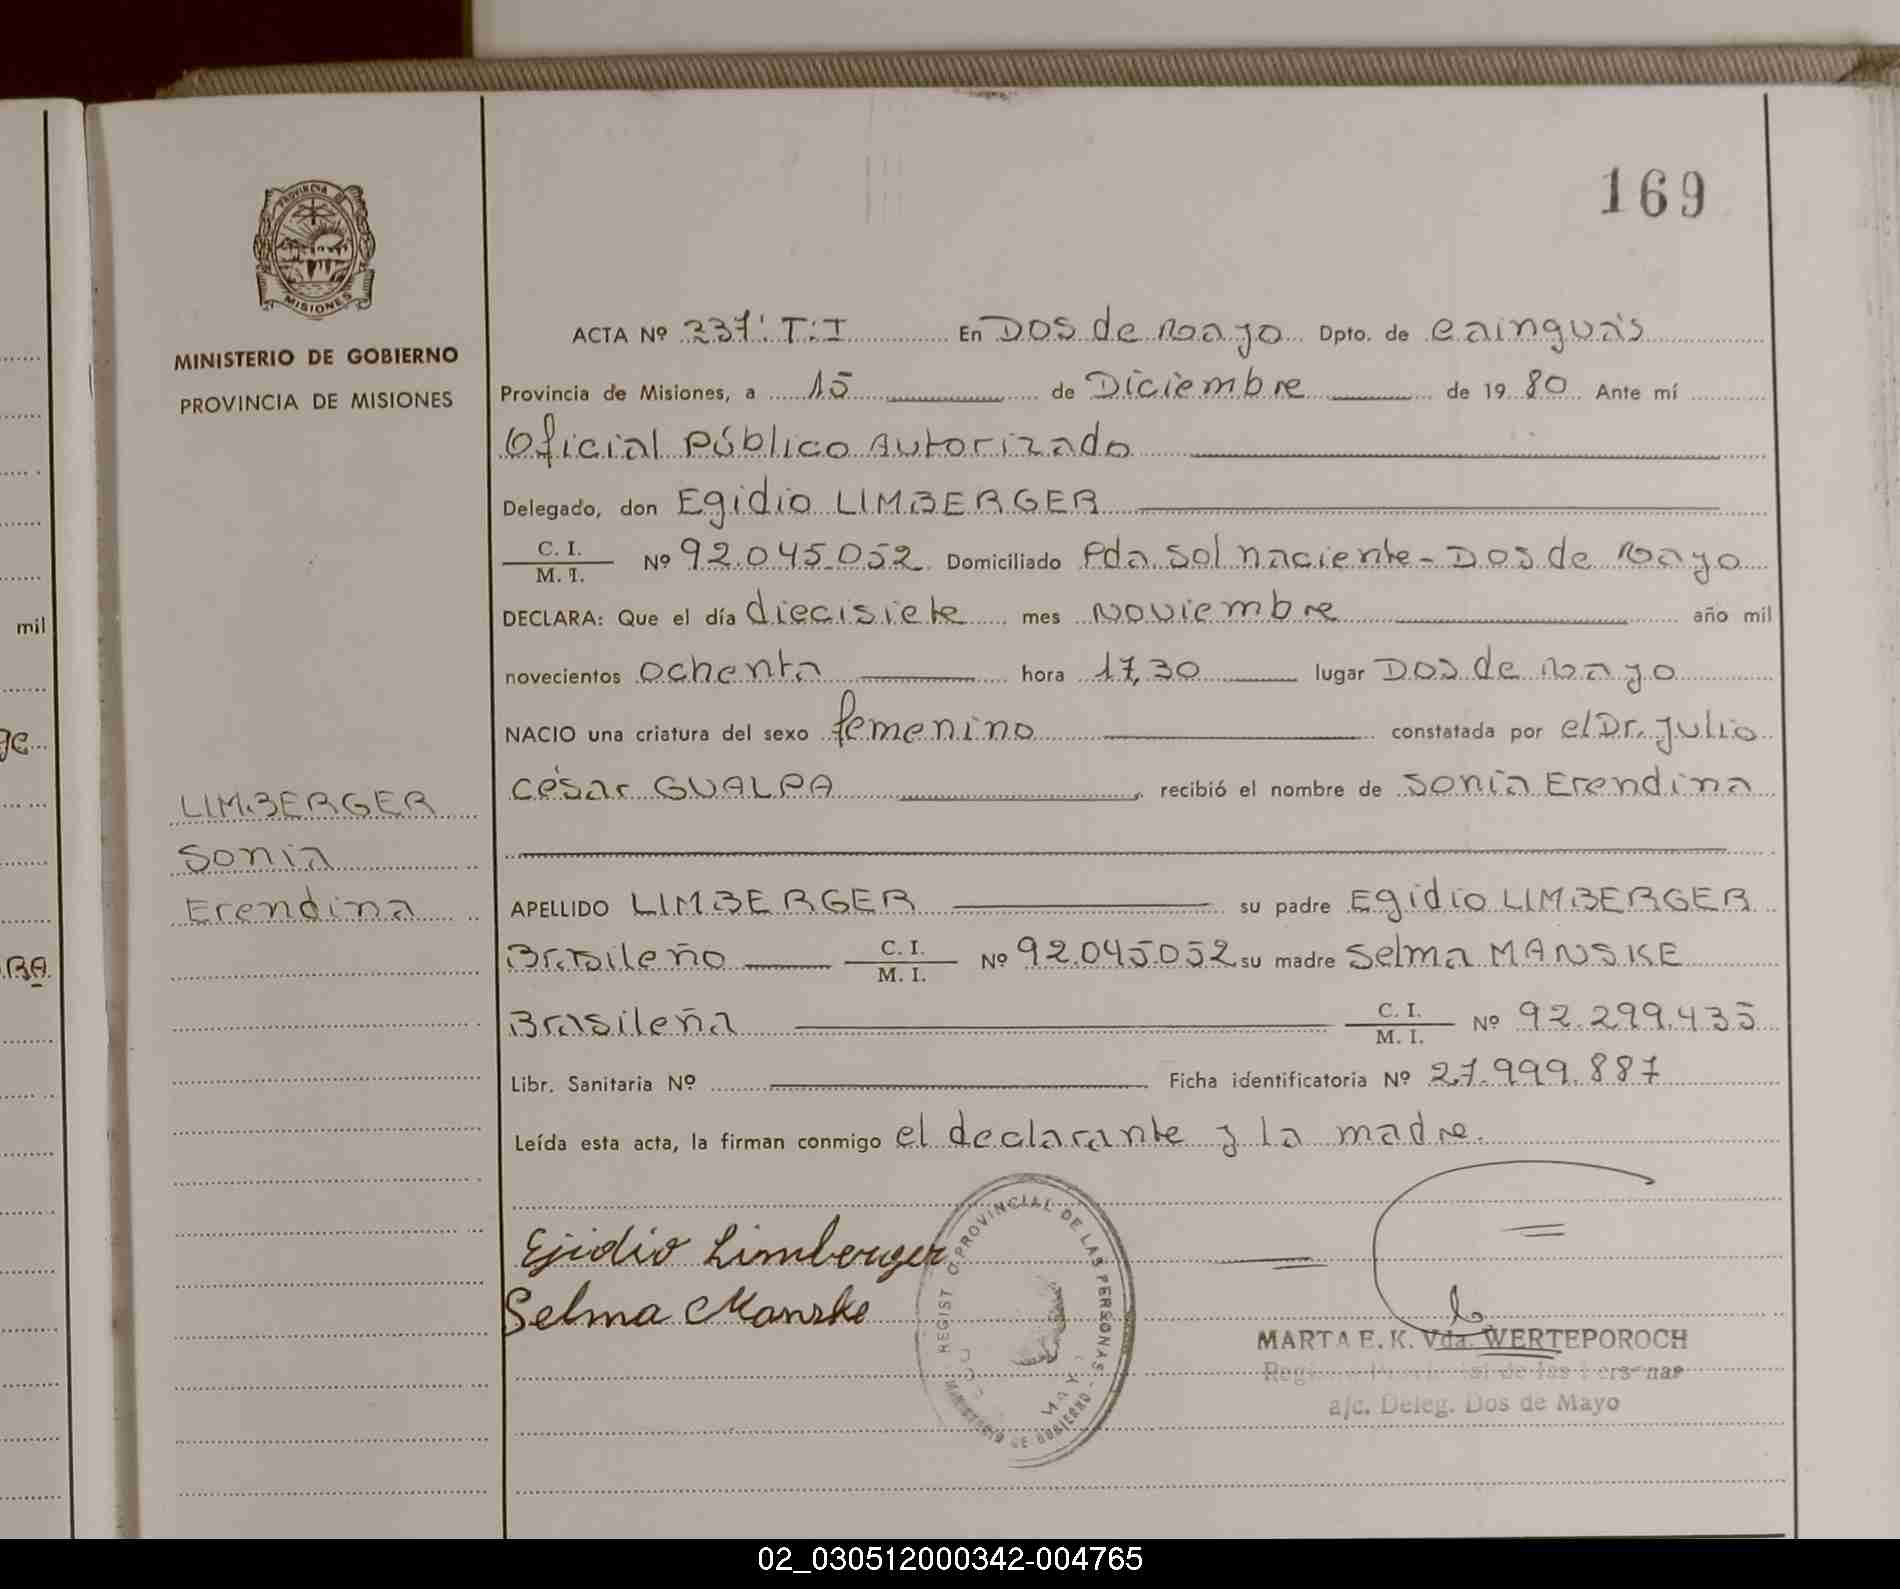 PROVINCIA DE
MISIONES
MINISTERIO DE GOBIERNO
PROVINCIA DE MISIONES
LIMBERGER
Sonia
Erendina
mil
ge
RA
169
ACTA Nº 237: T: I En Dos de Mayo Dpto. de Cainguás
Provincia de Misiones, a 15 de Diciembre de 1980 Ante mí
Oficial Público Autorizado
Delegado, don Egidio LIMBERGER
C. I. / M. I. Nº 92.045.052 Domiciliado Pda. Sol Naciente - Dos de Mayo
DECLARA: Que el día diecisiete mes Noviembre año mil
novecientos ochenta hora 17,30 lugar Dos de Mayo
NACIO una criatura del sexo femenino constatada por el Dr. Julio
César GUALPA, recibió el nombre de Sonia Erendina
APELLIDO LIMBERGER su padre Egidio LIMBERGER
Brasileño C. I. / M. I. Nº 92.045.052 su madre Selma MANSKE
Brasileña C. I. / M. I. Nº 92.299.435
Libr. Sanitaria Nº Ficha identificatoria Nº 27.999.887
Leída esta acta, la firman conmigo el declarante y la madre.
Ejidio Limberger
Selma Manske
REGIST O PROVINCIAL DE LAS PERSONAS - MINISTERIO DE GOBIERNO
MARTA E. K. Vda. WERTEPOROCH
Registro Provincial de las Personas
a/c. Deleg. Dos de Mayo
02_030512000342-004765